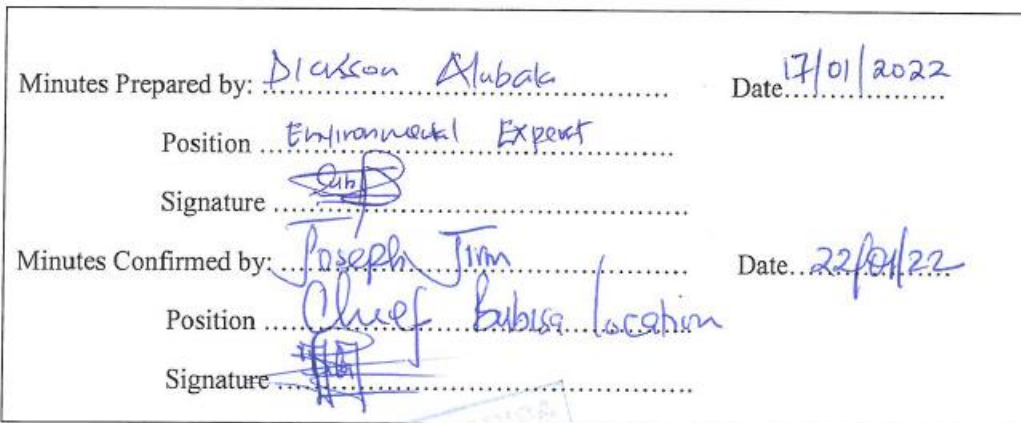 Minutes Prepared by: Dickson Alubala Date 17/01/2022
Position Environmental Expert
Signature
Minutes Confirmed by: Joseph Jirm Date 22/01/22
Position Chief Bubisa location
Signature